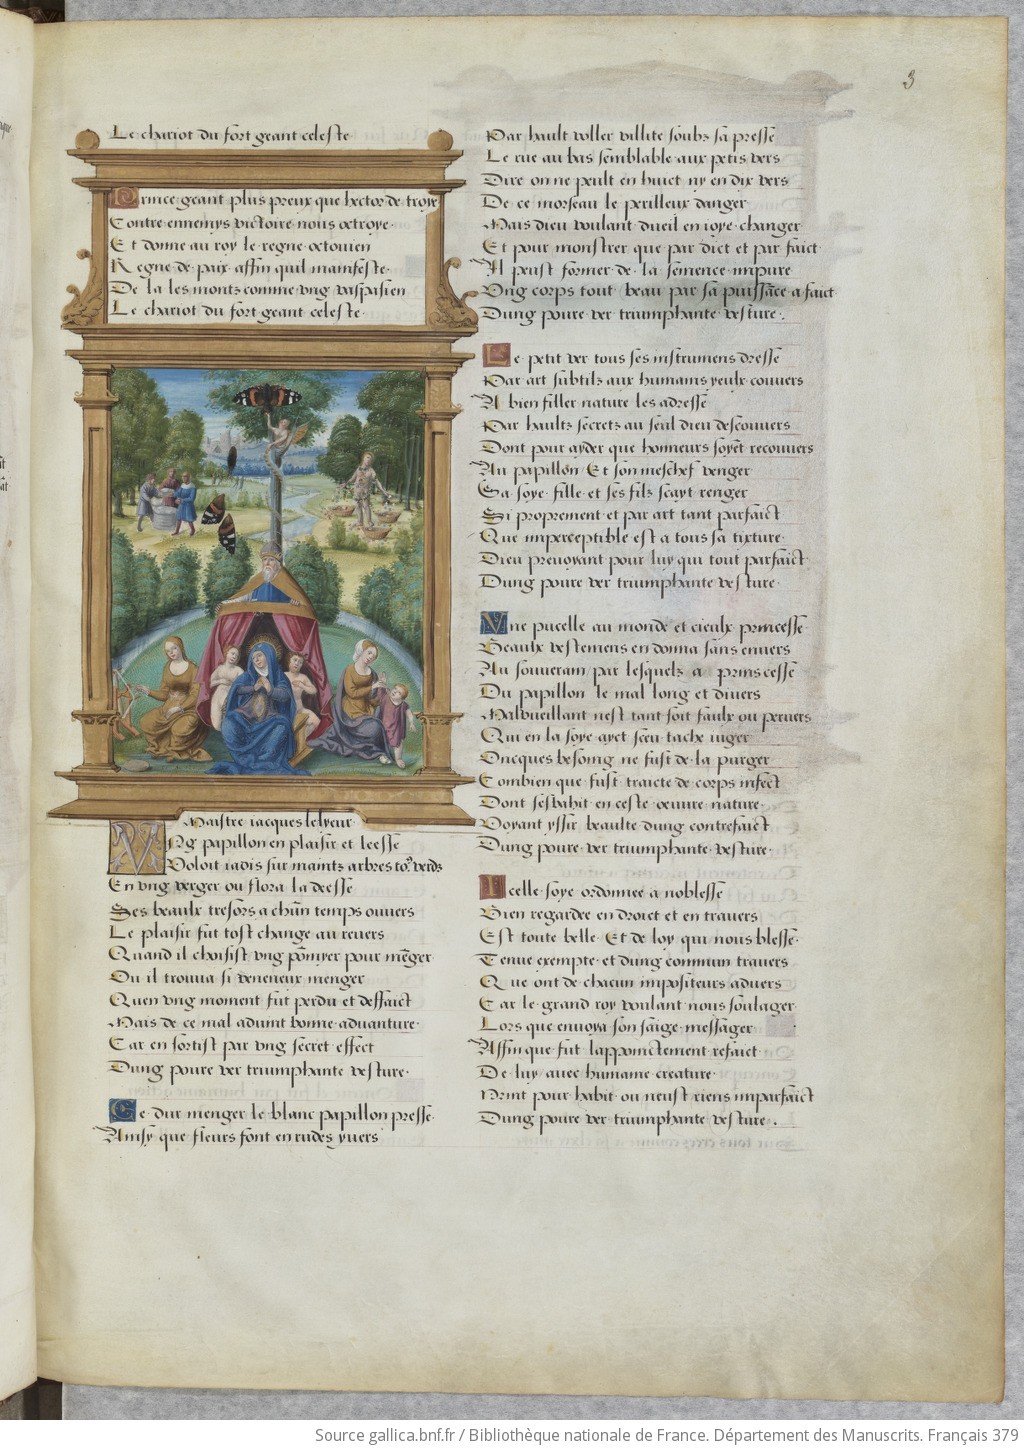 3
Le chariot du fort geant celeste
Prince geant plus preux que hector de troye
Contre ennemys victoire nous octroye
Et donne au roy le regne octouien
Regne de paix affin quil manifeste
De la les montz comme vng vaspasien
Le chariot du fort geant celeste
Maistre iacques lelyeur
Vng papillon en plaisir et leesse
Voloit iadis sur maintz arbres to9 verdz
En vng verger ou flora la deesse
Ses beaulx tresors a chun temps ouuers
Le plaisir fut tost change au reuers
Quand il choisist vng põmyer pour mẽger
Ou il trouua si veneneux menger
Quen vng moment fut perdu et deffaict
Mais de ce mal aduint bonne aduanture
Car en sortist par vng secret effect
Dung poure ver triumphante vesture
Ce dur menger le blanc papillon presse
Ainsy que fleurs sont en rudes yuers
Par hault voller villite soubz sa presse
Le rue au bas semblable aux petis vers
Dire on ne peult en huict ny en dix vers
De ce morseau le perilleux danger
Mais dieu voulant dueil en ioye changer
Et pour monstrer que par dict et par faict
Il peust former de la semence impure
Vng corps tout beau par sa puissãce a faict
Dung poure ver triumphante vesture
Le petit ver tous ses instrumens dresse
Par art subtilz aux humains yeulx couuers
A bien filler nature les adresse
Par haultz secretz au seul dieu descouuers
Dont pour ayder que honneurs soyẽt recouuers
Au papillon Et son meschef venger
Sa soye fille et ses filz scayt renger
Si proprement et par art tant parfaict
Que imperceptible est a tous sa tixture
Dieu preuoyant pour luy qui tout parfaict
Dung poure ver triumphante vesture
Vne pucelle au monde et cieulx princesse
Beaulx vestemens en donna sans enuers
Au souuerain par lesquelz a prins cesse
Du papillon le mal long et diuers
Malvueillant nest tant soit faulx ou peruers
Qui en la soye ayet sceu tache iuger
Oncques besoing ne fust de la purger
Combien que fust traicte de corps infect
Dont sesbahit en ceste oeuure nature
Voyant yssir beaulte dung contrefaict
Dung poure ver triumphante vesture
Icelle soye ordonnee a noblesse
Bien regardee en droict et en trauers
Est toute belle Et de loy qui nous blesse
Tenue exempte et dung commun trauers
Que ont de chacun impositeurs aduers
Car le grand roy voulant nous soulager
Lors que enuoya son saige messager
Affin que fut lappoinctement refaict
De luy auec humaine creature
Print pour habit ou neust riens imparfaict
Dung poure ver triumphante vesture
Source gallica.bnf.fr / Bibliothèque nationale de France. Département des Manuscrits. Français 379